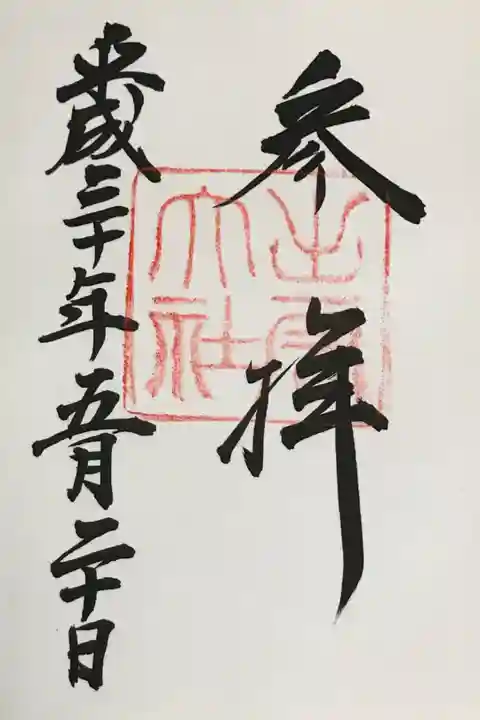 參拝
出雲大社
平成三十年五月二十日